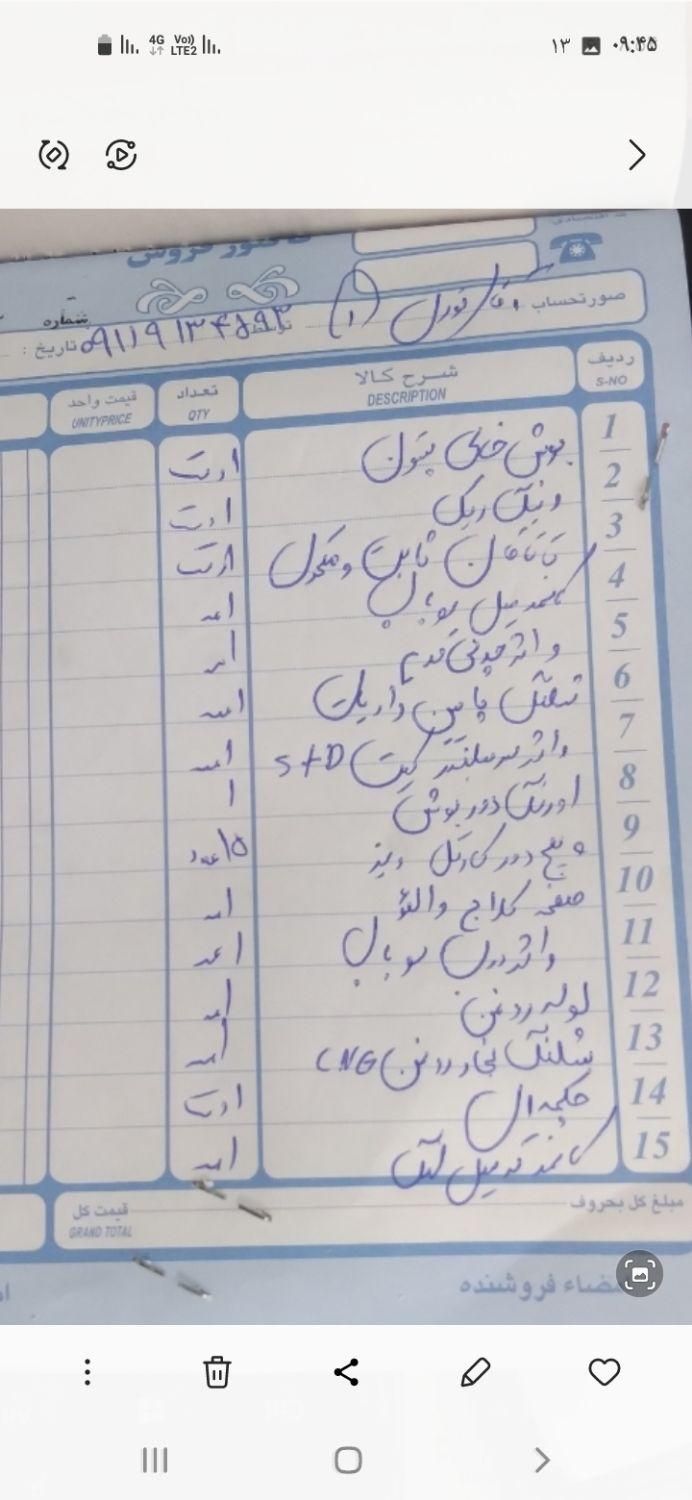 ۰۹:۴۵ ۱۳
4G Vo)) LTE2
فاکتور فروش
صورتحساب آقای (۱)
شماره
تاریخ : توسط ۰۹۱۱۹۱۳۴۵۹۳
ردیف S-NO شرح کالا DESCRIPTION تعداد QTY قیمت واحد UNITYPRICE
1 بوش خالی پیستون ۱ ست
2 رینگ ریک ۱ ست
3 یاتاقان ثابت و متحرک ۱ ست
4 کاسه نمد میل سوپاپ ۱ عدد
5 واشر ۱ عدد
6 پایین ۱ عدد
7 واشر سرسیلندر کیت STD ۱ عدد
8 اورنگ دور بوش ۱
9 پیچ دور کارتل ریز ۱۵ عدد
10 صفحه کلاج والئو ۱ عدد
11 واشر درب سوپاپ ۱ عدد
12 لوله روغن ۱ عدد
13 شلنگ بخار روغن CNG ۱ عدد
14 ۱ ست
15 کاسه نمد ته میل لنگ ۱ عدد
مبلغ کل بحروف قیمت کل
GRAND TOTAL
امضاء فروشنده